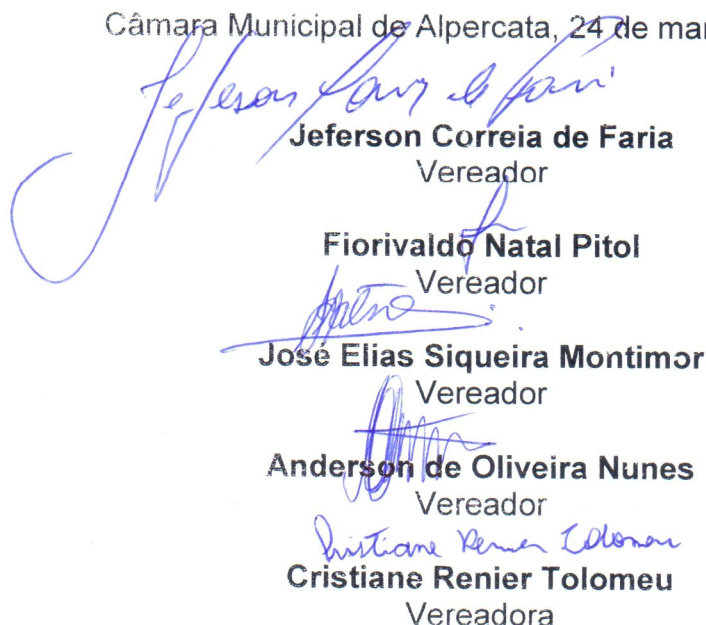 Câmara Municipal de Alpercata, 24 de mar
Jeferson Correia de Faria
Vereador
Fiorivaldo Natal Pitol
Vereador
José Elias Siqueira Montimor
Vereador
Anderson de Oliveira Nunes
Vereador
Cristiane Renier Tolomeu
Cristiane Renier Tolomeu
Vereadora